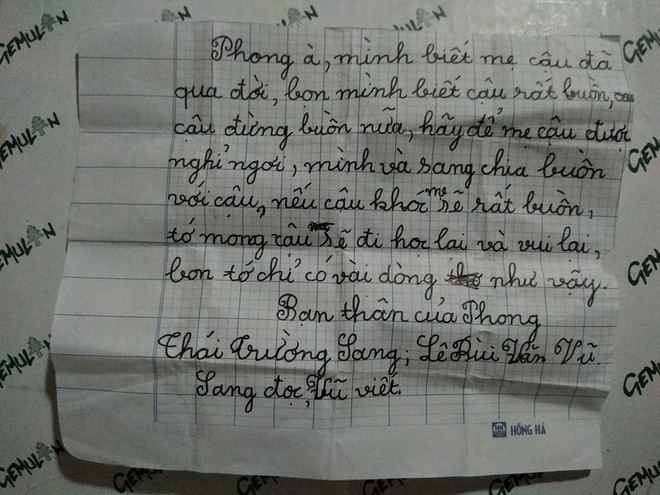 Phong à, mình biết mẹ cậu đã
qua đời, bọn mình biết cậu rất buồn,
cậu đừng buồn nữa, hãy để mẹ cậu được
nghỉ ngơi, mình và sang chia buồn
với cậu, nếu cậu khóc mẹ sẽ rất buồn,
tớ mong cậu sẽ đi học lại và vui lại,
bọn tớ chỉ có vài dòng như vậy.
Bạn thân của Phong
Thái Trường Sang; Lê Bùi Văn Vũ
Sang đọc, Vũ viết.
HỒNG HÀ
GEMULAN
GEMULAN
GEMULAN
GEMULAN
GEMULAN
GEMULAN